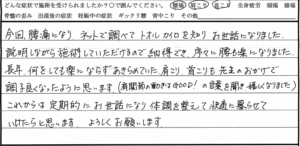 どんな症状で施術を受けられましたか？○で囲んでください。 腰痛 肩こり 首こり 全身疲労 頭痛 膝痛
骨盤の歪み 出産後の症状 妊娠中の症状 ギックリ腰 背中こり その他
今回、腰痛になり ネットで調べて トオルカイロを知り お世話になりました。
説明しながら施術していただけるので 納得でき、序々に腰も楽になりました。
長年、何をしても楽にならずあきらめていた肩こり、首こりも先生のおかげで
調子良くなったように思います(肩関節の動きはGOOD!の言葉を聞き嬉しくなりました)
これからは定期的にお世話になり 体調を整えて快適に暮らせて
いけたらと思います。よろしくお願いします。